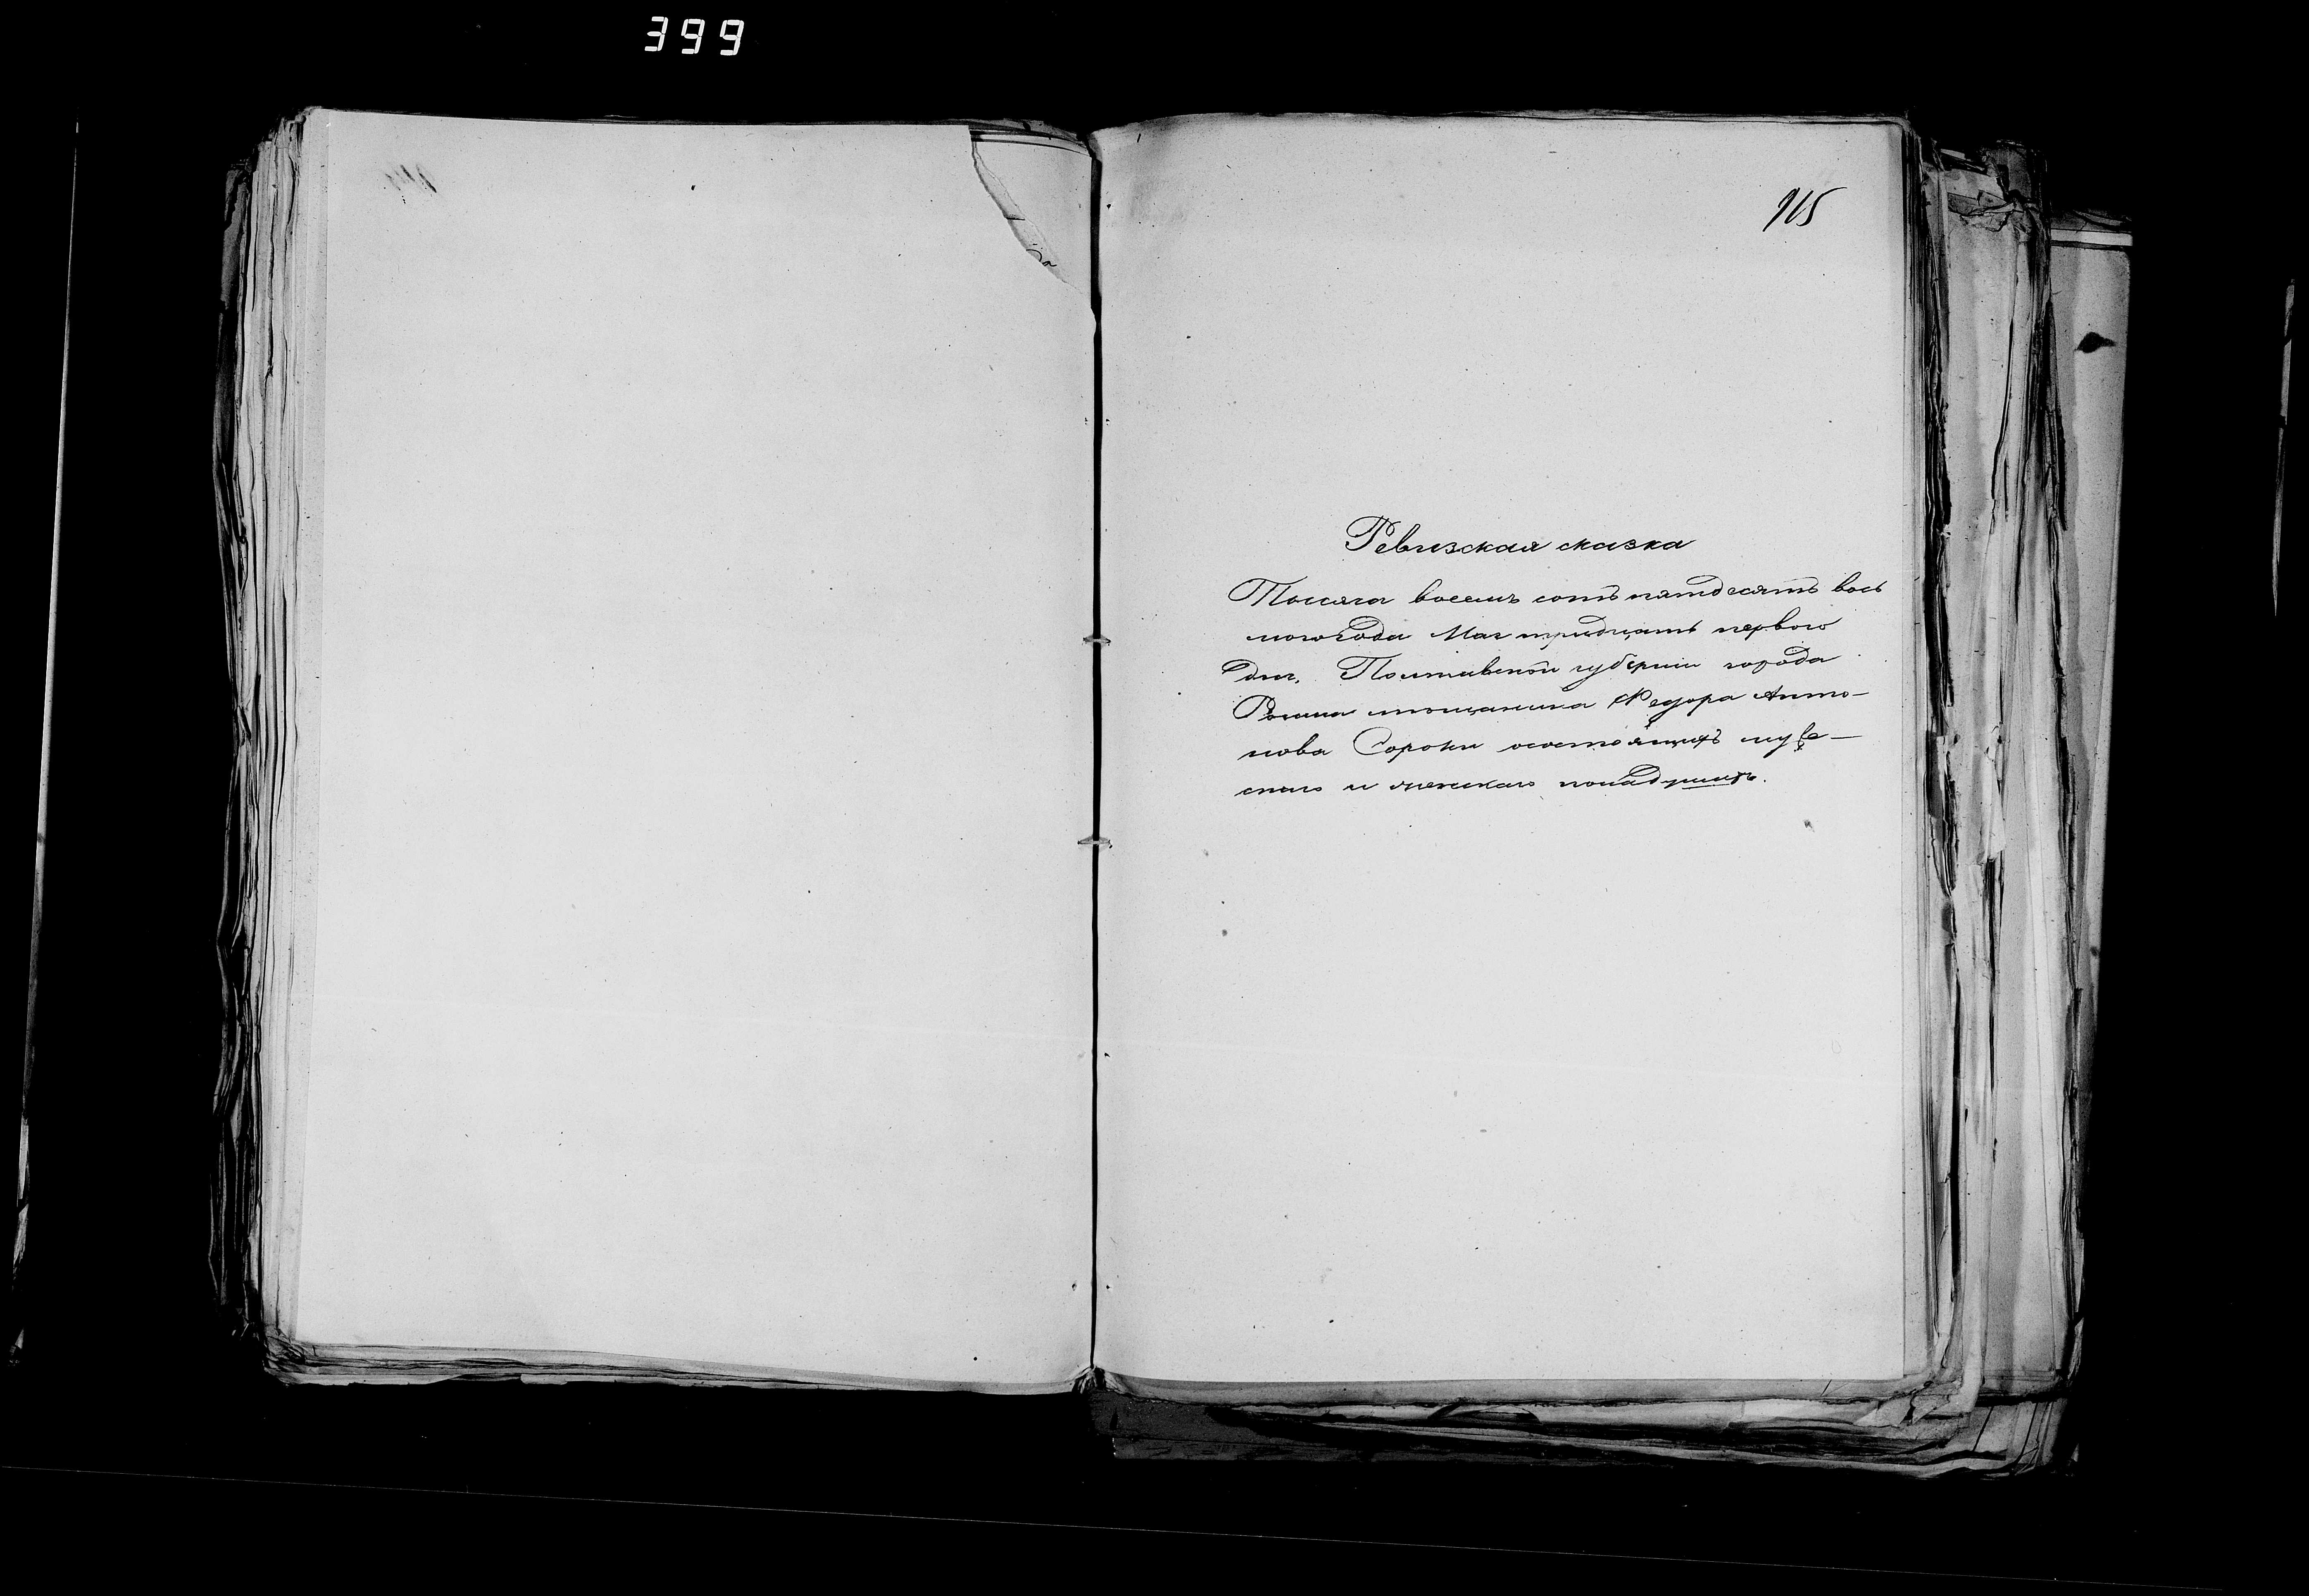 399
915
Ревизская сказка
Тысяча восемь сотъ пятдесятъ вось
мого года Мая тридцать первого
дня, Полтавской губернiи города
Ромна мѣщанина Федора Анто-
нова Сороки осостоящихъ муже-
скаго и женскаго пола душахъ.